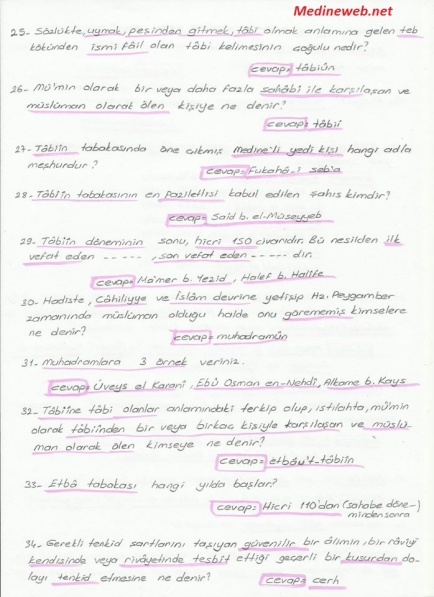 Medineweb.net
25- Sözlükte, uymak, peşinden gitmek, tâbi olmak anlamına gelen teb
kökünden ismi fâil olan tâbi kelimesinin çoğulu nedir?
cevap= tâbiûn
26- Mü'min olarak bir veya daha fazla sahâbî ile karşılaşan ve
müslüman olarak ölen kişiye ne denir?
cevap= tâbiî
27- Tâbiîn tabakasında öne çıkmış Medine'li yedi kişi hangi adla
meşhurdur?
cevap= Fukahâ-i seb'a
28- Tâbiîn tabakasının en faziletlisi kabul edilen şahıs kimdir?
cevap= Said b. el-Müseyyeb
29- Tâbiîn döneminin sonu, hicri 150 civarıdır. Bu nesilden ilk
vefat eden - - - - -, son vefat eden - - - - - dır.
cevap= Ma'mer b. Yezid, Halef b. Halife
30- Hadiste, Câhiliyye ve İslâm devrine yetişip Hz. Peygamber
zamanında müslüman olduğu halde onu görememiş kimselere
ne denir?
cevap= muhadramûn
31- Muhadramlara 3 örnek veriniz.
cevap= Üveys el Karanî, Ebû Osman en-Nehdî, Alkame b. Kays
32- Tâbiîne tâbi olanlar anlamındaki terkip olup, ıstılahta, mü'min
olarak tâbiînden bir veya birkaç kişiyle karşılaşan ve müslü-
man olarak ölen kimseye ne denir?
cevap= etbâu't-tâbiîn
33- Etbâ tabakası hangi yılda başlar?
cevap= Hicri 110'dan (sahabe döne-)
minden sonra
34- Gerekli tenkid şartlarını taşıyan güvenilir bir âlimin, bir râviyi
kendisinde veya rivâyetinde tesbit ettiği geçerli bir kusurdan do-
layı tenkid etmesine ne denir?
cevap= cerh